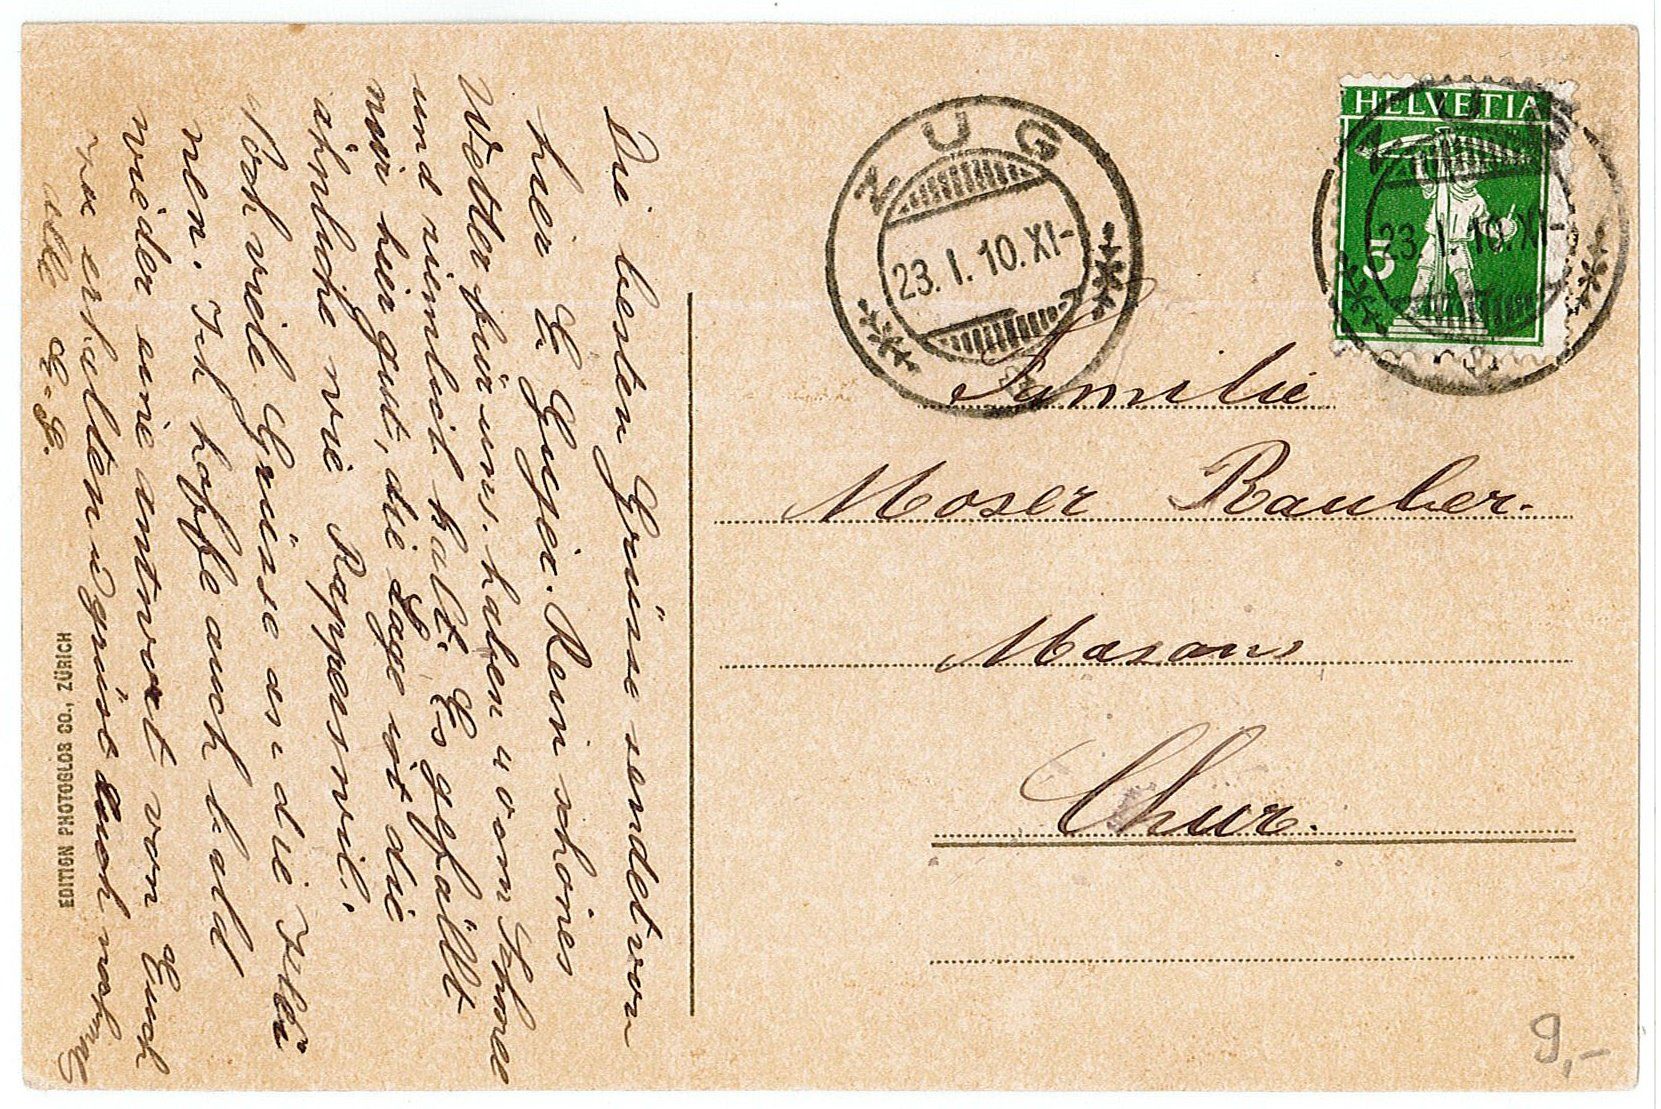 Die besten Grüsse sendet von
hier E. Gujer. Kein schönes
Wetter für uns. haben u vom Schnee
und ziemlich kalt. Es gefällt
mir hier gut, die Lage ist die
ähnliche wie Rapperswil.
Noch viele Grüsse an die
nen. Ich hoffe auch bald
wieder eine antwort von Euch
zu erhalten u grüsst Euch nochmals
alle E. G.
EDITION PHOTOGLOB CO., ZÜRICH
ZUG
23. I. 10. XI-
HELVETIA
5
ZUG
23. I. 10. XI-
Familie
Moser Rauber.
Masans
Chur.
9,-